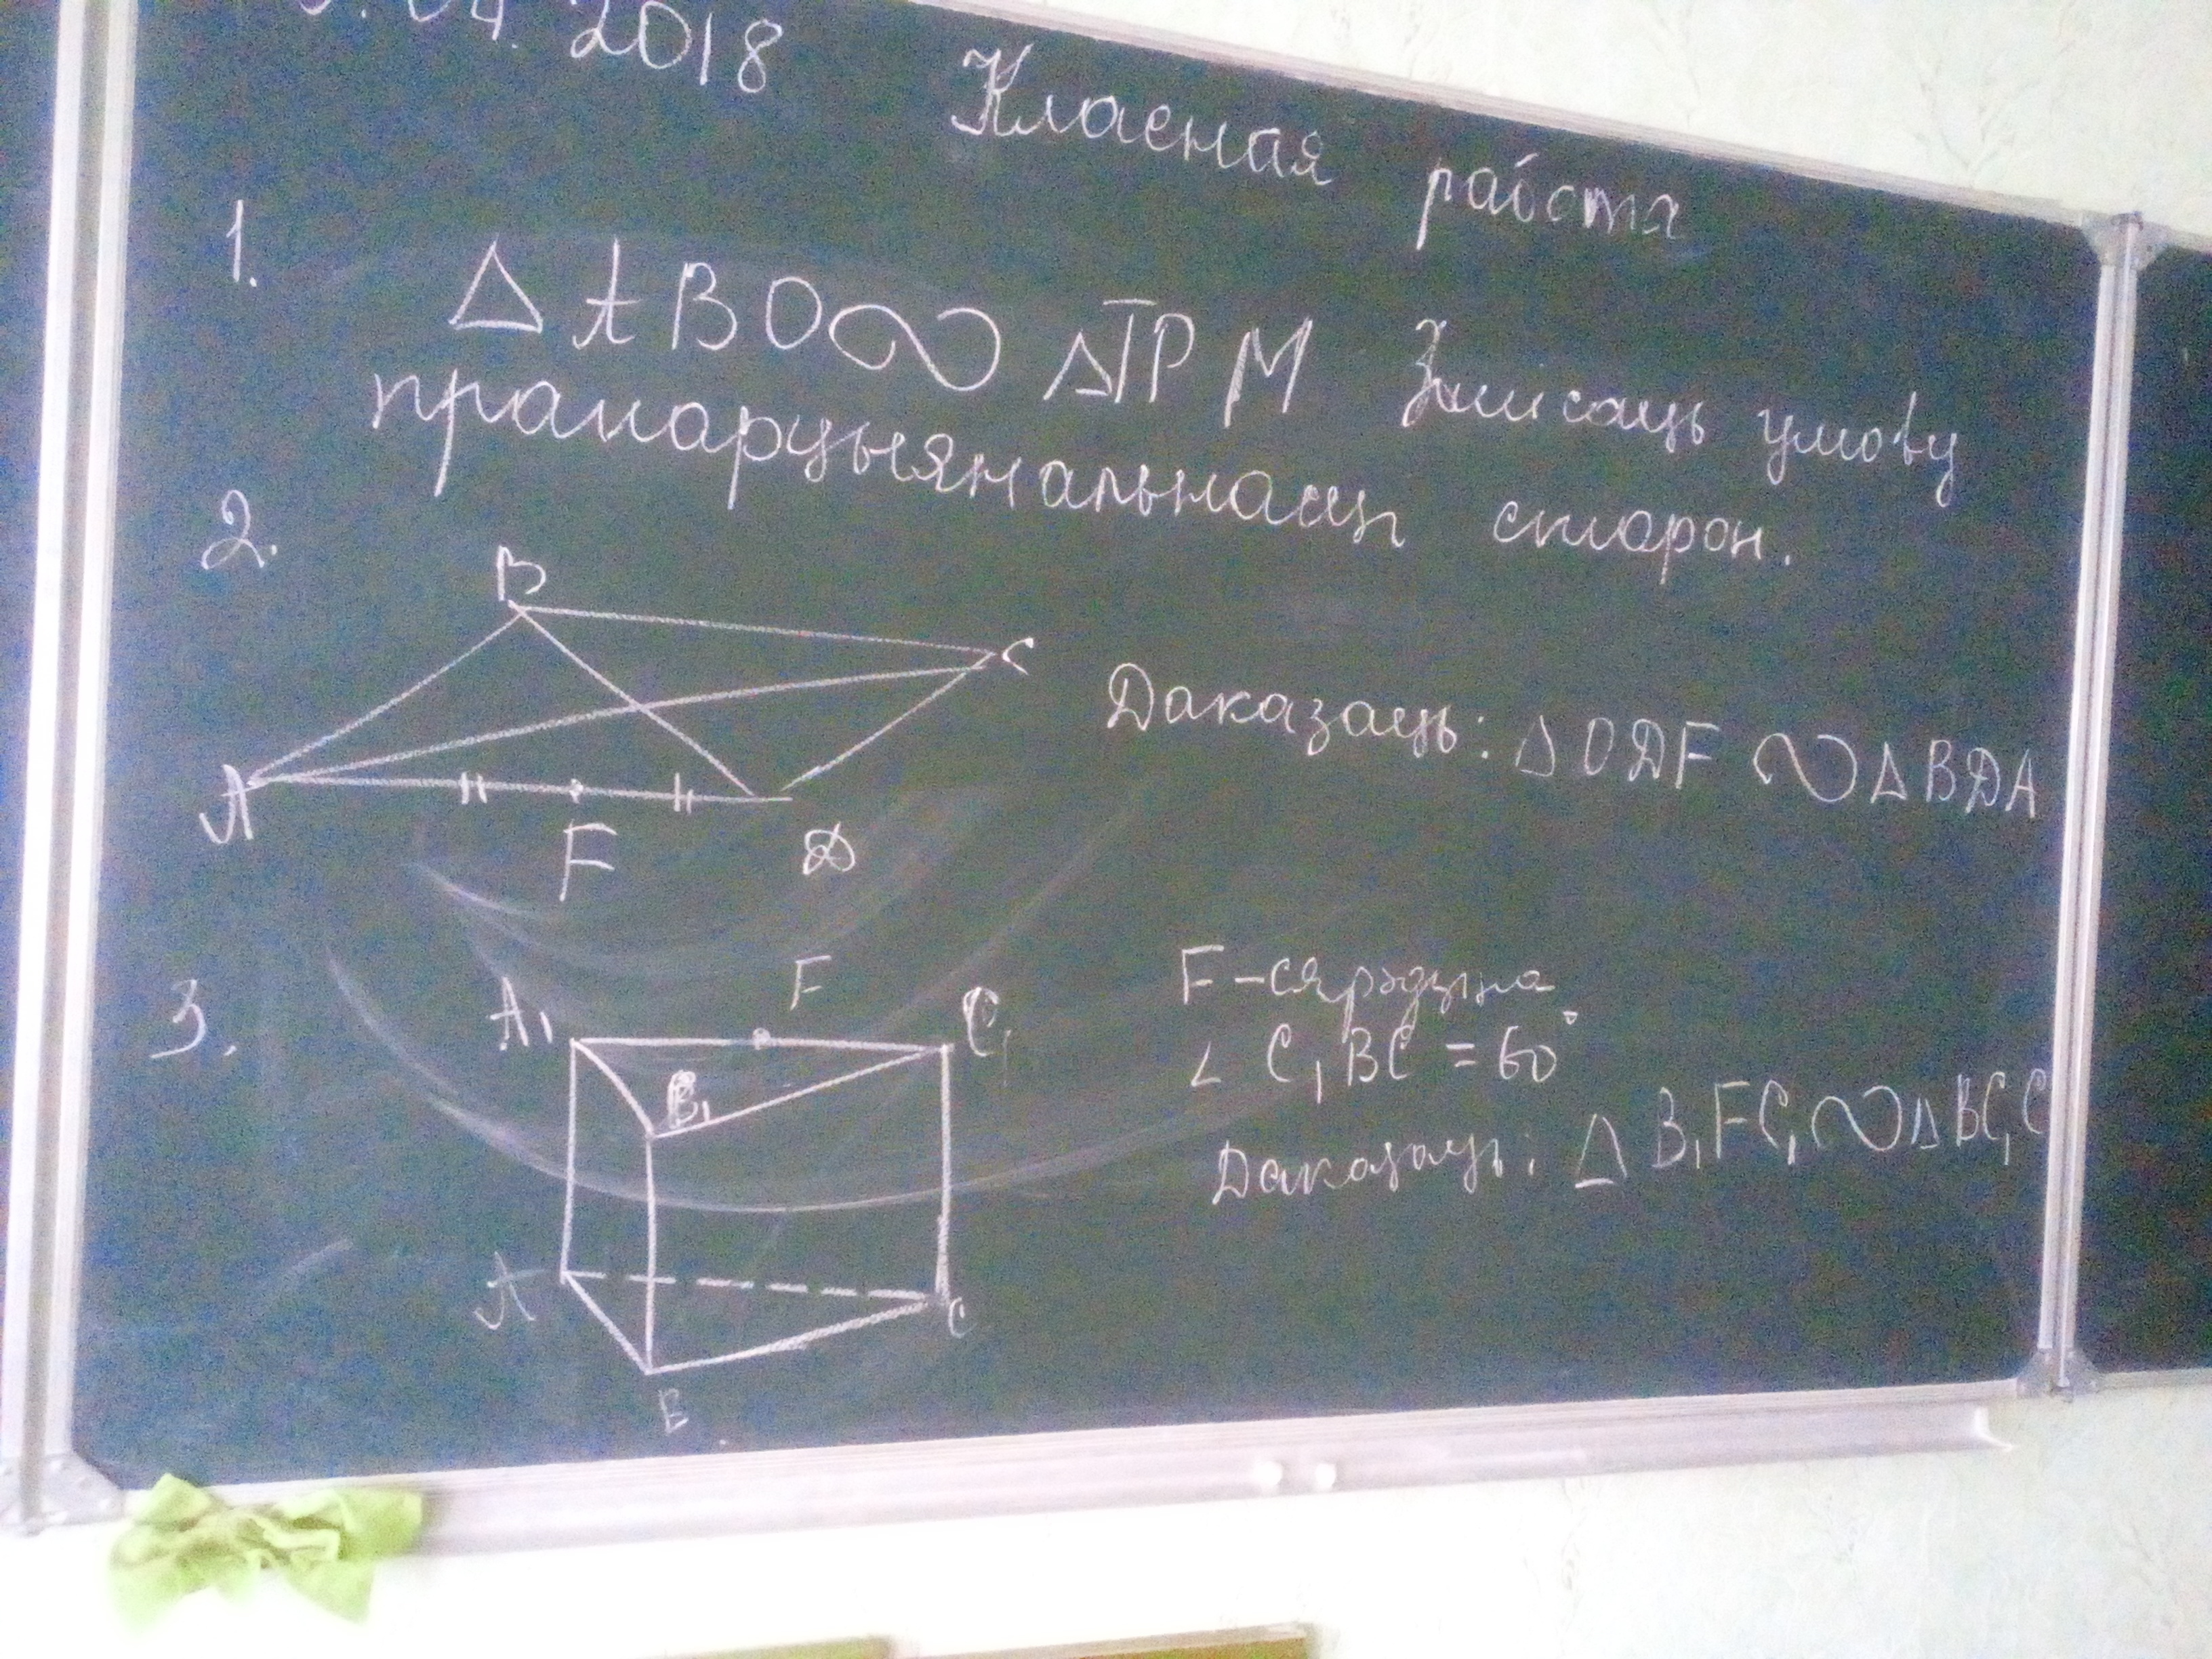 04. 2018
Класная работа
1.
△ABO ∾ △TPM Запісаць умову
прапарцыянальнасці старон.
2.
B
C
A
F
D
Даказаць: △ODF ∾ △BDA
3.
A₁
F
C₁
B₁
A
C
B
F - сярэдзіна
∠ C₁BC = 60°
Даказаць: △ B₁FC₁ ∾ △ BC₁C